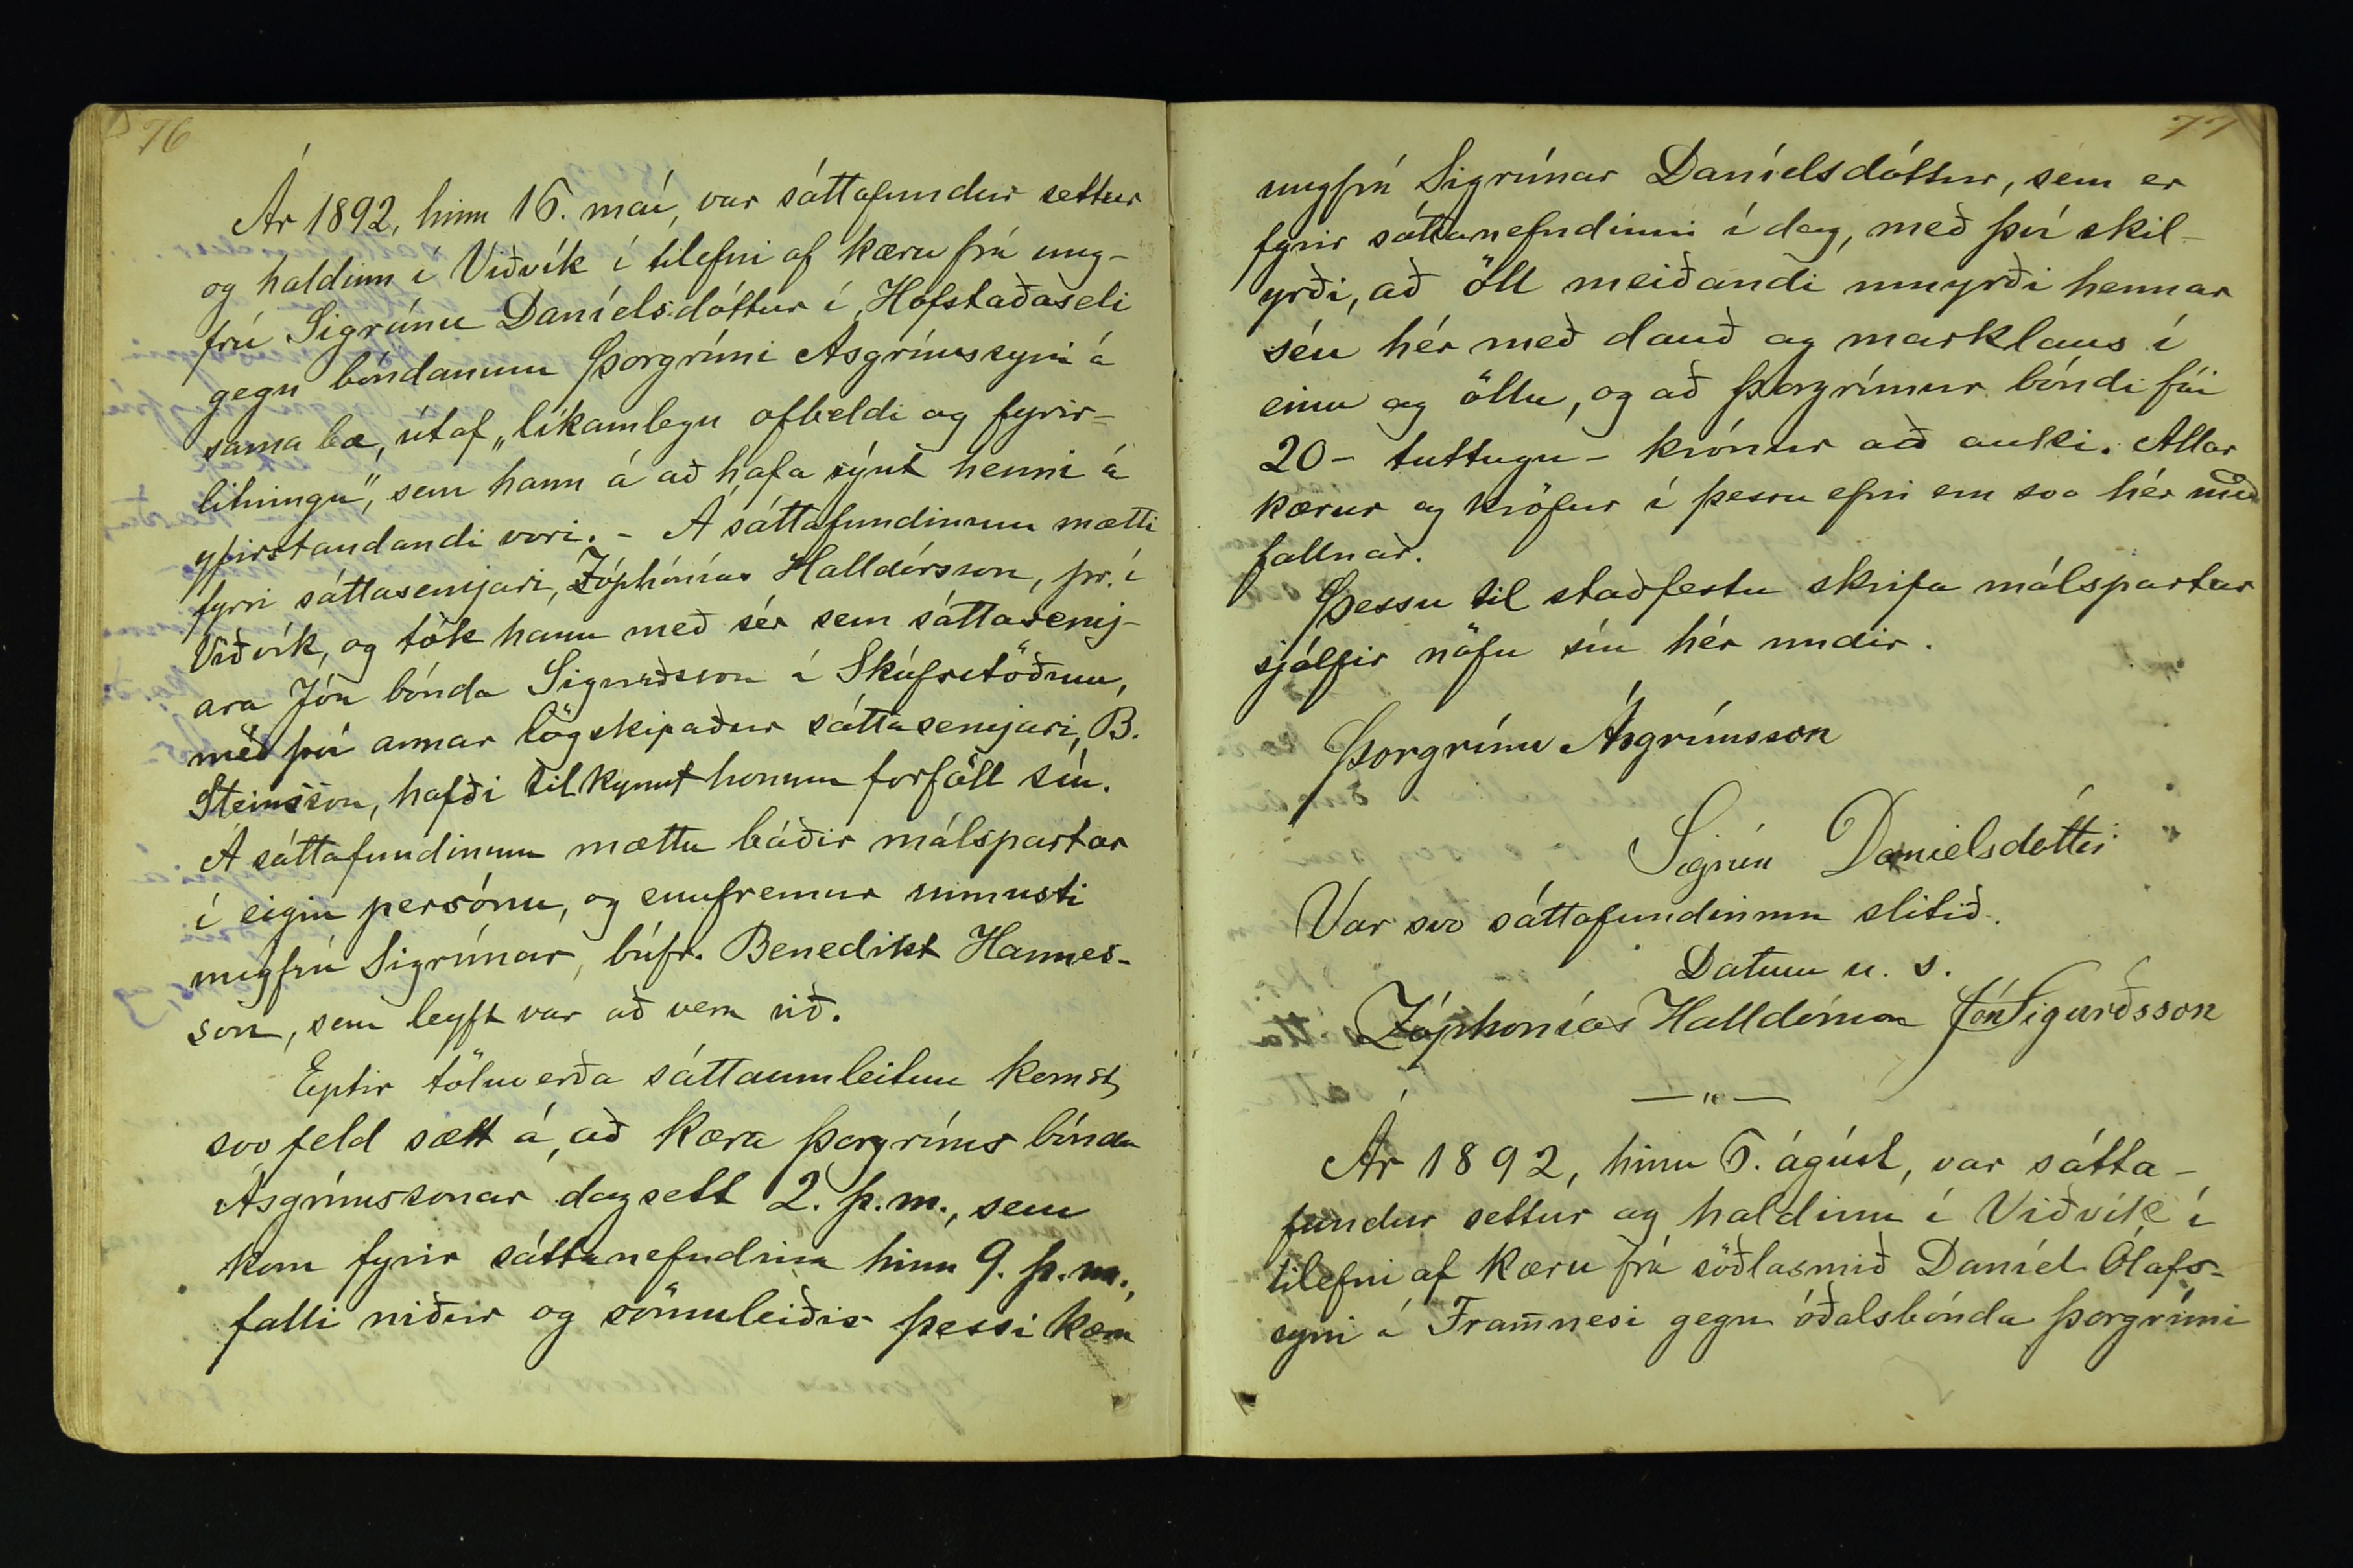 76
Ár 1892, hinn 16. maí, var sáttafundur settur
og haldinn í Viðvík í tilefni af kæru frá ung-
frú Sigrúnu Daníelsdóttur í Hofstaðaseli
gegn bóndanum Þorgrími Ásgrímssyni á
sama bæ, útaf „líkamlegu ofbeldi og fyrir-
litningu", sem hann á að hafa sýnt henni á
yfirstandandi vori. - Á sáttafundinum mætti
fyrri sáttasemjari, Zóphónías Halldórsson, pr. í
Viðvík, og tók hann með sér sem sáttasemj-
ara Jón bónda Sigurðsson í Skúfsstöðum,
með því annar lögskipaður sáttasemjari, B.
Steinsson, hafði tilkynnt honum forföll sín.
Á sáttafundinum mættu báðir málspartar
í eigin persónu, og ennfremur unnusti
ungfrú Sigrúnar, búfr. Benedikt Hannes-
son, sem leyft var að vera við.
Eptir töluverða sáttaumleitun komst
svo feld sætt á, að kæra Þorgríms bónda
Ásgrímssonar dagsett 2. þ.m., sem
kom fyrir sáttanefndina hinn 9. þ.m.,
falli niður og sömuleiðis þessi kæra
77
ungfrú Sigrúnar Daníelsdóttur, sem er
fyrir sáttanefndinni í dag, með því skil-
yrði, að öll meiðandi ummyrði hennar
séu hér með dauð og marklaus í
einu og öllu, og að Þorgrímur bóndi fái
20 - tuttugu - krónur að auki. Allar
kærur og kröfur í þessu efni eru svo hér með
fallnar.
Þessu til staðfestu skrifa málspartar
sjálfir nöfn sín hér undir.
Þorgrímr Ásgrímsson
Sigrún Danielsdóttir
Var svo sáttafundinum slitið.
Datum u. s.
Zóphonías Halldórsson Jón Sigurðsson
— " —
Ár 1892, hinn 6. ágúst, var sátta-
fundur settur og haldinn í Viðvík í
tilefni af kæru frá söðlasmið Daníel Ólafs-
syni á Framnesi gegn óðalsbónda Þorgrími